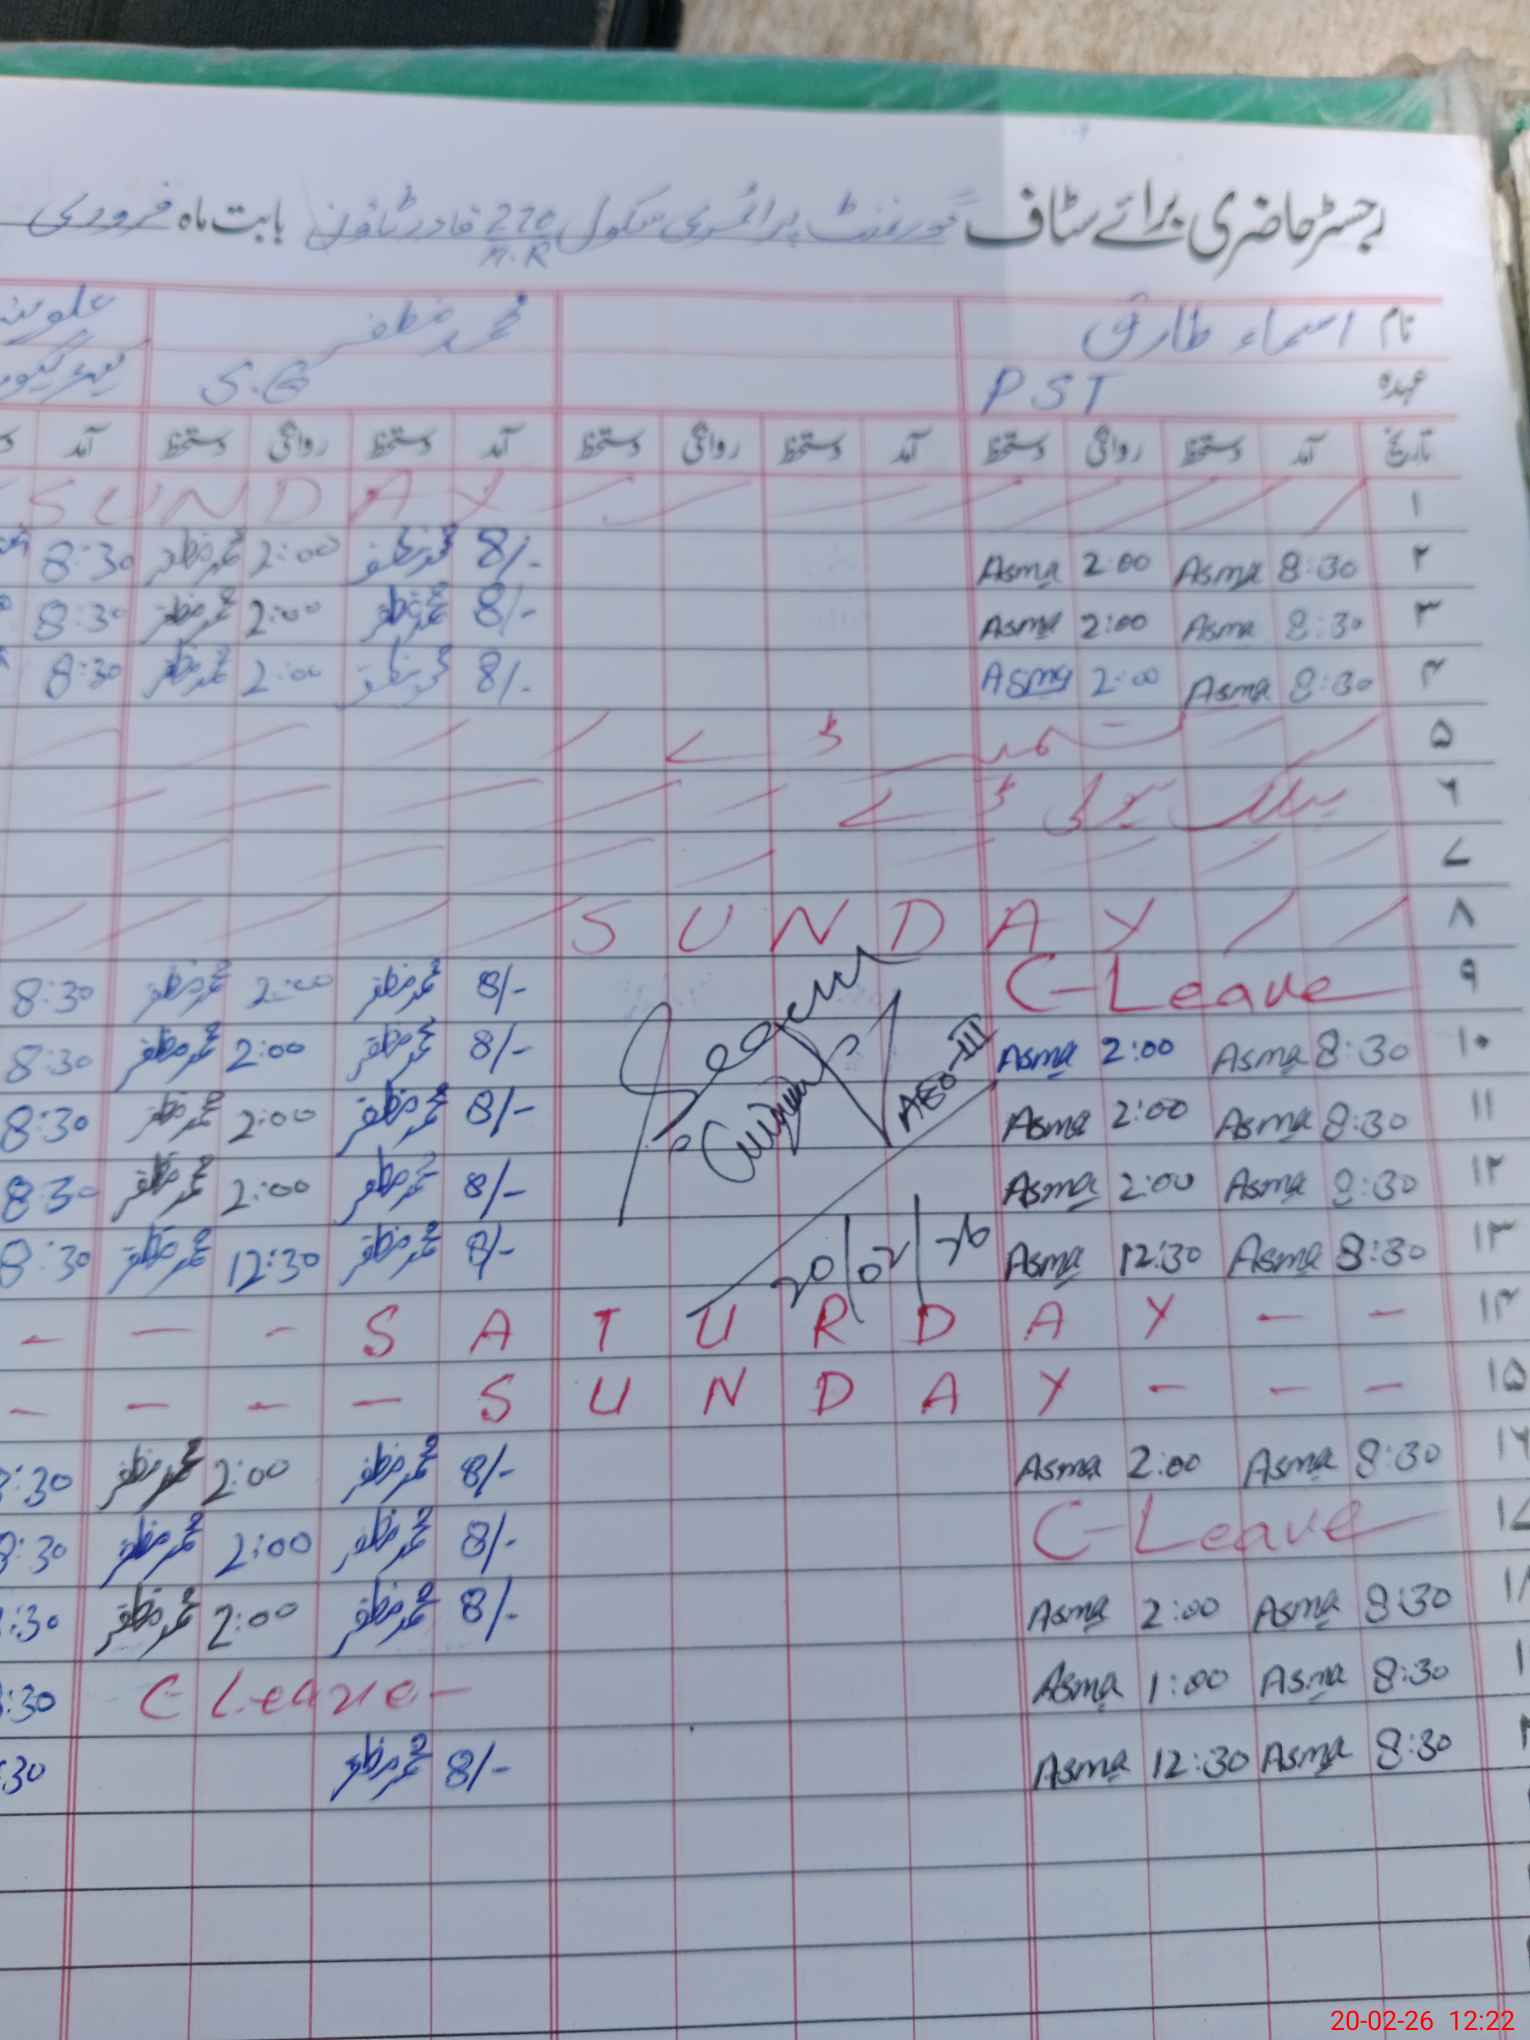 رجسٹر حاضری برائے سٹاف گورنمنٹ پرائمری سکول 270 قادر ٹاؤن بابت ماہ فروری
نام اسماء طارق محمد مظفر
عہدہ PST S.G
تاریخ آمد دستخط روانگی دستخط آمد دستخط روانگی دستخط آمد دستخط روانگی دستخط آمد
۱ SUNDAY
۲ 8:30 Asma 2:00 Asma 8/- محمد مظفر 2:00 محمد مظفر 8:30
۳ 8:30 Asma 2:00 Asma 8/- محمد مظفر 2:00 محمد مظفر 8:30
۴ 8:30 Asma 2:00 Asma 8/- محمد مظفر 2:00 محمد مظفر 8:30
۵ کشمیر ڈے
۶ ڈے
۷
۸ SUNDAY
۹ C-Leave 8/- محمد مظفر 2:00 محمد مظفر 8:30
۱۰ 8:30 Asma 2:00 Asma AEO-III 8/- محمد مظفر 2:00 محمد مظفر 8:30
۱۱ 8:30 Asma 2:00 Asma 8/- محمد مظفر 2:00 محمد مظفر 8:30
۱۲ 8:30 Asma 2:00 Asma 8/- محمد مظفر 2:00 محمد مظفر 8:30
۱۳ 8:30 Asma 12:30 Asma 20/02/26 8/- محمد مظفر 12:30 محمد مظفر 8:30
۱۴ - - SATURDAY - - -
۱۵ - - - SUNDAY - - - -
۱۶ 8:30 Asma 2:00 Asma 8/- محمد مظفر 2:00 محمد مظفر :30
۱۷ C-Leave 8/- محمد مظفر 2:00 محمد مظفر 8:30
۱۸ 8:30 Asma 2:00 Asma 8/- محمد مظفر 2:00 محمد مظفر :30
8:30 Asma 1:00 Asma C Leave - :30
8:30 Asma 12:30 Asma 8/- محمد مظفر :30
20-02-26 12:22